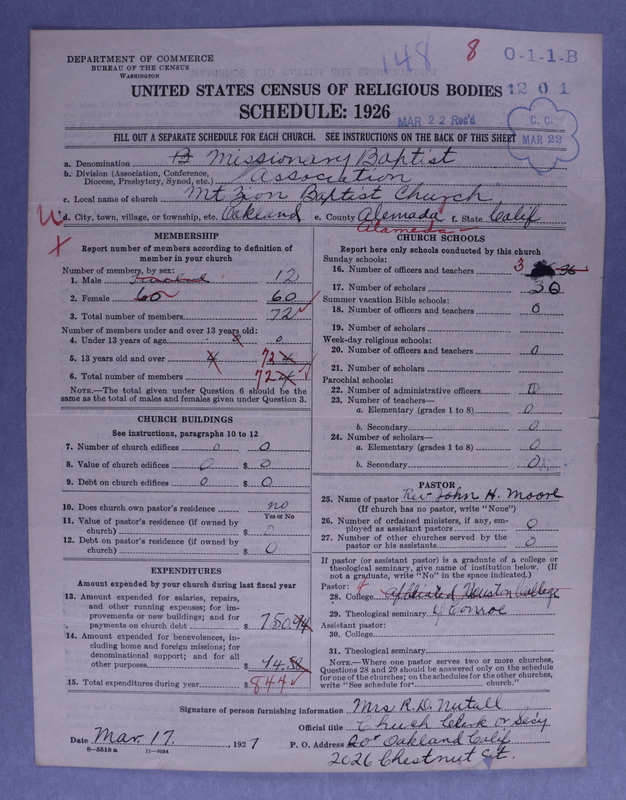 DEPARTMENT OF COMMERCE
BUREAU OF THE CENSUS
WASHINGTON
148
8
0-1-1-B
UNITED STATES CENSUS OF RELIGIOUS BODIES
1201
SCHEDULE: 1926
MAR 22 Rec'd
C. C.
MAR 22
FILL OUT A SEPARATE SCHEDULE FOR EACH CHURCH. SEE INSTRUCTIONS ON THE BACK OF THIS SHEET
a. Denomination B Missionary Baptist
b. Division (Association, Conference, Diocese, Presbytery, Synod, etc.) Association
c. Local name of church Mt Zion Baptist Church
d. City, town, village, or township, etc. Oakland e. County Alemada f. State Calif
Alameda
MEMBERSHIP
Report number of members according to definition of
member in your church
Number of members, by sex:
1. Male 12
2. Female 60 60
3. Total number of members 72
Number of members under and over 13 years old:
4. Under 13 years of age 0
5. 13 years old and over 4 72
6. Total number of members 4 72
NOTE.—The total given under Question 6 should be the
same as the total of males and females given under Question 3.
CHURCH BUILDINGS
See instructions, paragraphs 10 to 12
7. Number of church edifices 0 0
8. Value of church edifices 0 $ 0
9. Debt on church edifices 0 $ 0
10. Does church own pastor's residence no
Yes or No
11. Value of pastor's residence (if owned by
church) $ 0
12. Debt on pastor's residence (if owned by
church) $ 0
EXPENDITURES
Amount expended by your church during last fiscal year
13. Amount expended for salaries, repairs,
and other running expenses; for im-
provements or new buildings; and for
payments on church debt $ 750.94
14. Amount expended for benevolences, in-
cluding home and foreign missions; for
denominational support; and for all
other purposes $ 94.58
15. Total expenditures during year $ 844
CHURCH SCHOOLS
Report here only schools conducted by this church
Sunday schools:
16. Number of officers and teachers 3 36
17. Number of scholars 36
Summer vacation Bible schools:
18. Number of officers and teachers 0
19. Number of scholars
Week-day religious schools:
20. Number of officers and teachers 0
21. Number of scholars
Parochial schools:
22. Number of administrative officers 0
23. Number of teachers—
a. Elementary (grades 1 to 8) 0
b. Secondary 0
24. Number of scholars—
a. Elementary (grades 1 to 8) 0
b. Secondary 0
PASTOR
25. Name of pastor Rev John H. Moore
(If church has no pastor, write "None")
26. Number of ordained ministers, if any, em-
ployed as assistant pastors 0
27. Number of other churches served by the
pastor or his assistants 0
If pastor (or assistant pastor) is a graduate of a college or
theological seminary, give name of institution below. (If
not a graduate, write "No" in the space indicated.)
Pastor:
28. College Affiliated Houston College
29. Theological seminary Conroe
Assistant pastor:
30. College
31. Theological seminary
NOTE.—Where one pastor serves two or more churches,
Questions 28 and 29 should be answered only on the schedule
for one of the churches; on the schedules for the other churches,
write "See schedule for church."
Signature of person furnishing information Mrs R. D. Nutall
Official title Chuch Clerk or Secy
Date Mar. 17. 1927 P. O. Address Oakland Calif
8-5518a 11-9034 2026 Chestnut St.